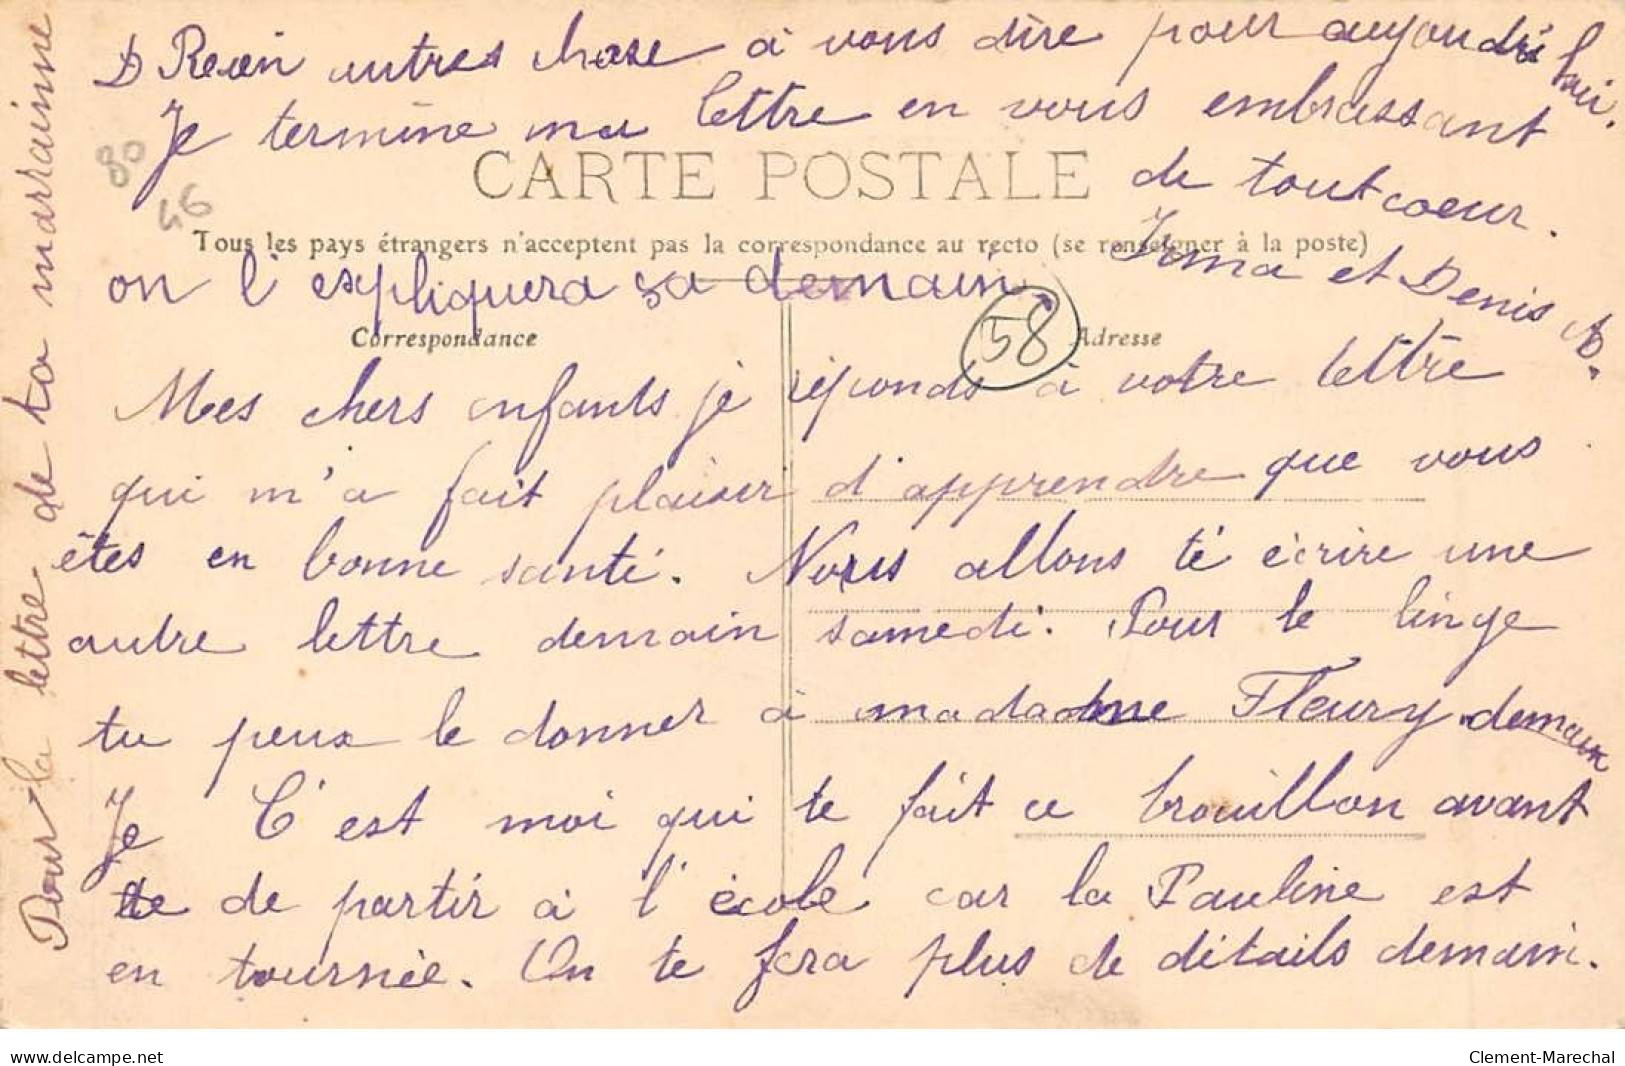 D Reien autres chose à vous dire pour aujoudri hui.
Je termine ma lettre en vous embrassant
de tout coeur.
Irma et Denis
80
46
CARTE POSTALE
Tous les pays étrangers n'acceptent pas la correspondance au recto (se renseigner à la poste)
on l'expliquera sa demain
58
Correspondance
Adresse
Mes chers enfants je réponds à votre lettre
qui m'a fait plaisir d'apprendre que vous
êtes en bonne santé. Nous allons té écrire une
autre lettre demain samedi. Pour le linge
tu peux le donner à madadme Fleury demain
Je C'est moi qui te fait ce brouillon avant
de de partir à l'école car la Pauline est
en tournée. On te fera plus de détails demain.
Pour la lettre de ta marrainne
delcampe.net
Clement-Marechal